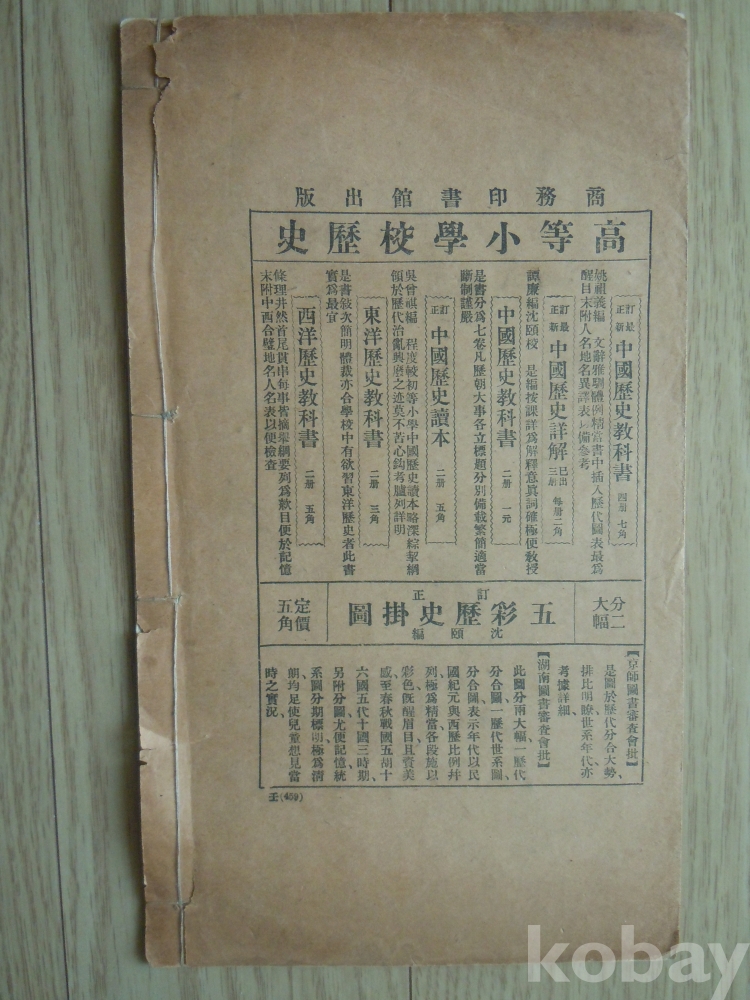 商務印書館出版
高等小學校歷史
訂正最新 中國歷史教科書 四册 七角
姚祖義編 文辭雅馴體例精當書中插入歷代圖表最為
醒目末附人名地名異譯表以備參考
訂正最新 中國歷史詳解 已出三册 每册二角
譚廉編沈頤校 是編按課詳為解釋意眞詞確極便敎授
中國歷史教科書 二册 一元
是書分為七卷凡歷朝大事各立標題分別備載繁簡適當
斷制謹嚴
訂正 中國歷史讀本 二册 五角
吳曾祺編 程度較初等小學中國歷史讀本略深綜挈綱
領於歷代治亂興廢之迹莫不苦心鈎考臚列詳明
東洋歷史教科書 二册 三角
是書敍次簡明體裁亦合學校中有欲習東洋歷史者此書
實為最宜
西洋歷史教科書 二册 五角
條理井然首尾貫串每事皆摘舉綱要列為款目便於記憶
末附中西合璧地名人名表以便檢查
分二大幅
訂正
五彩歷史掛圖
沈頤編
定價五角
【京師圖書審查會批】
是圖於歷代分合大勢、
排比明瞭世系年代亦
考據詳細、
【湖南圖書審查會批】
此圖分兩大幅一歷代
分合圖一歷代世系圖
分合圖表示年代以民
國紀元與西歷比例幷
列極為精當各段施以
彩色旣醒眉目且資美
感至春秋戰國五胡十
六國五代十國三時期、
另附分圖尤便記憶統
系圖分期標明極為清
朗均足使兒童想見當
時之實況
壬(459)
kobay